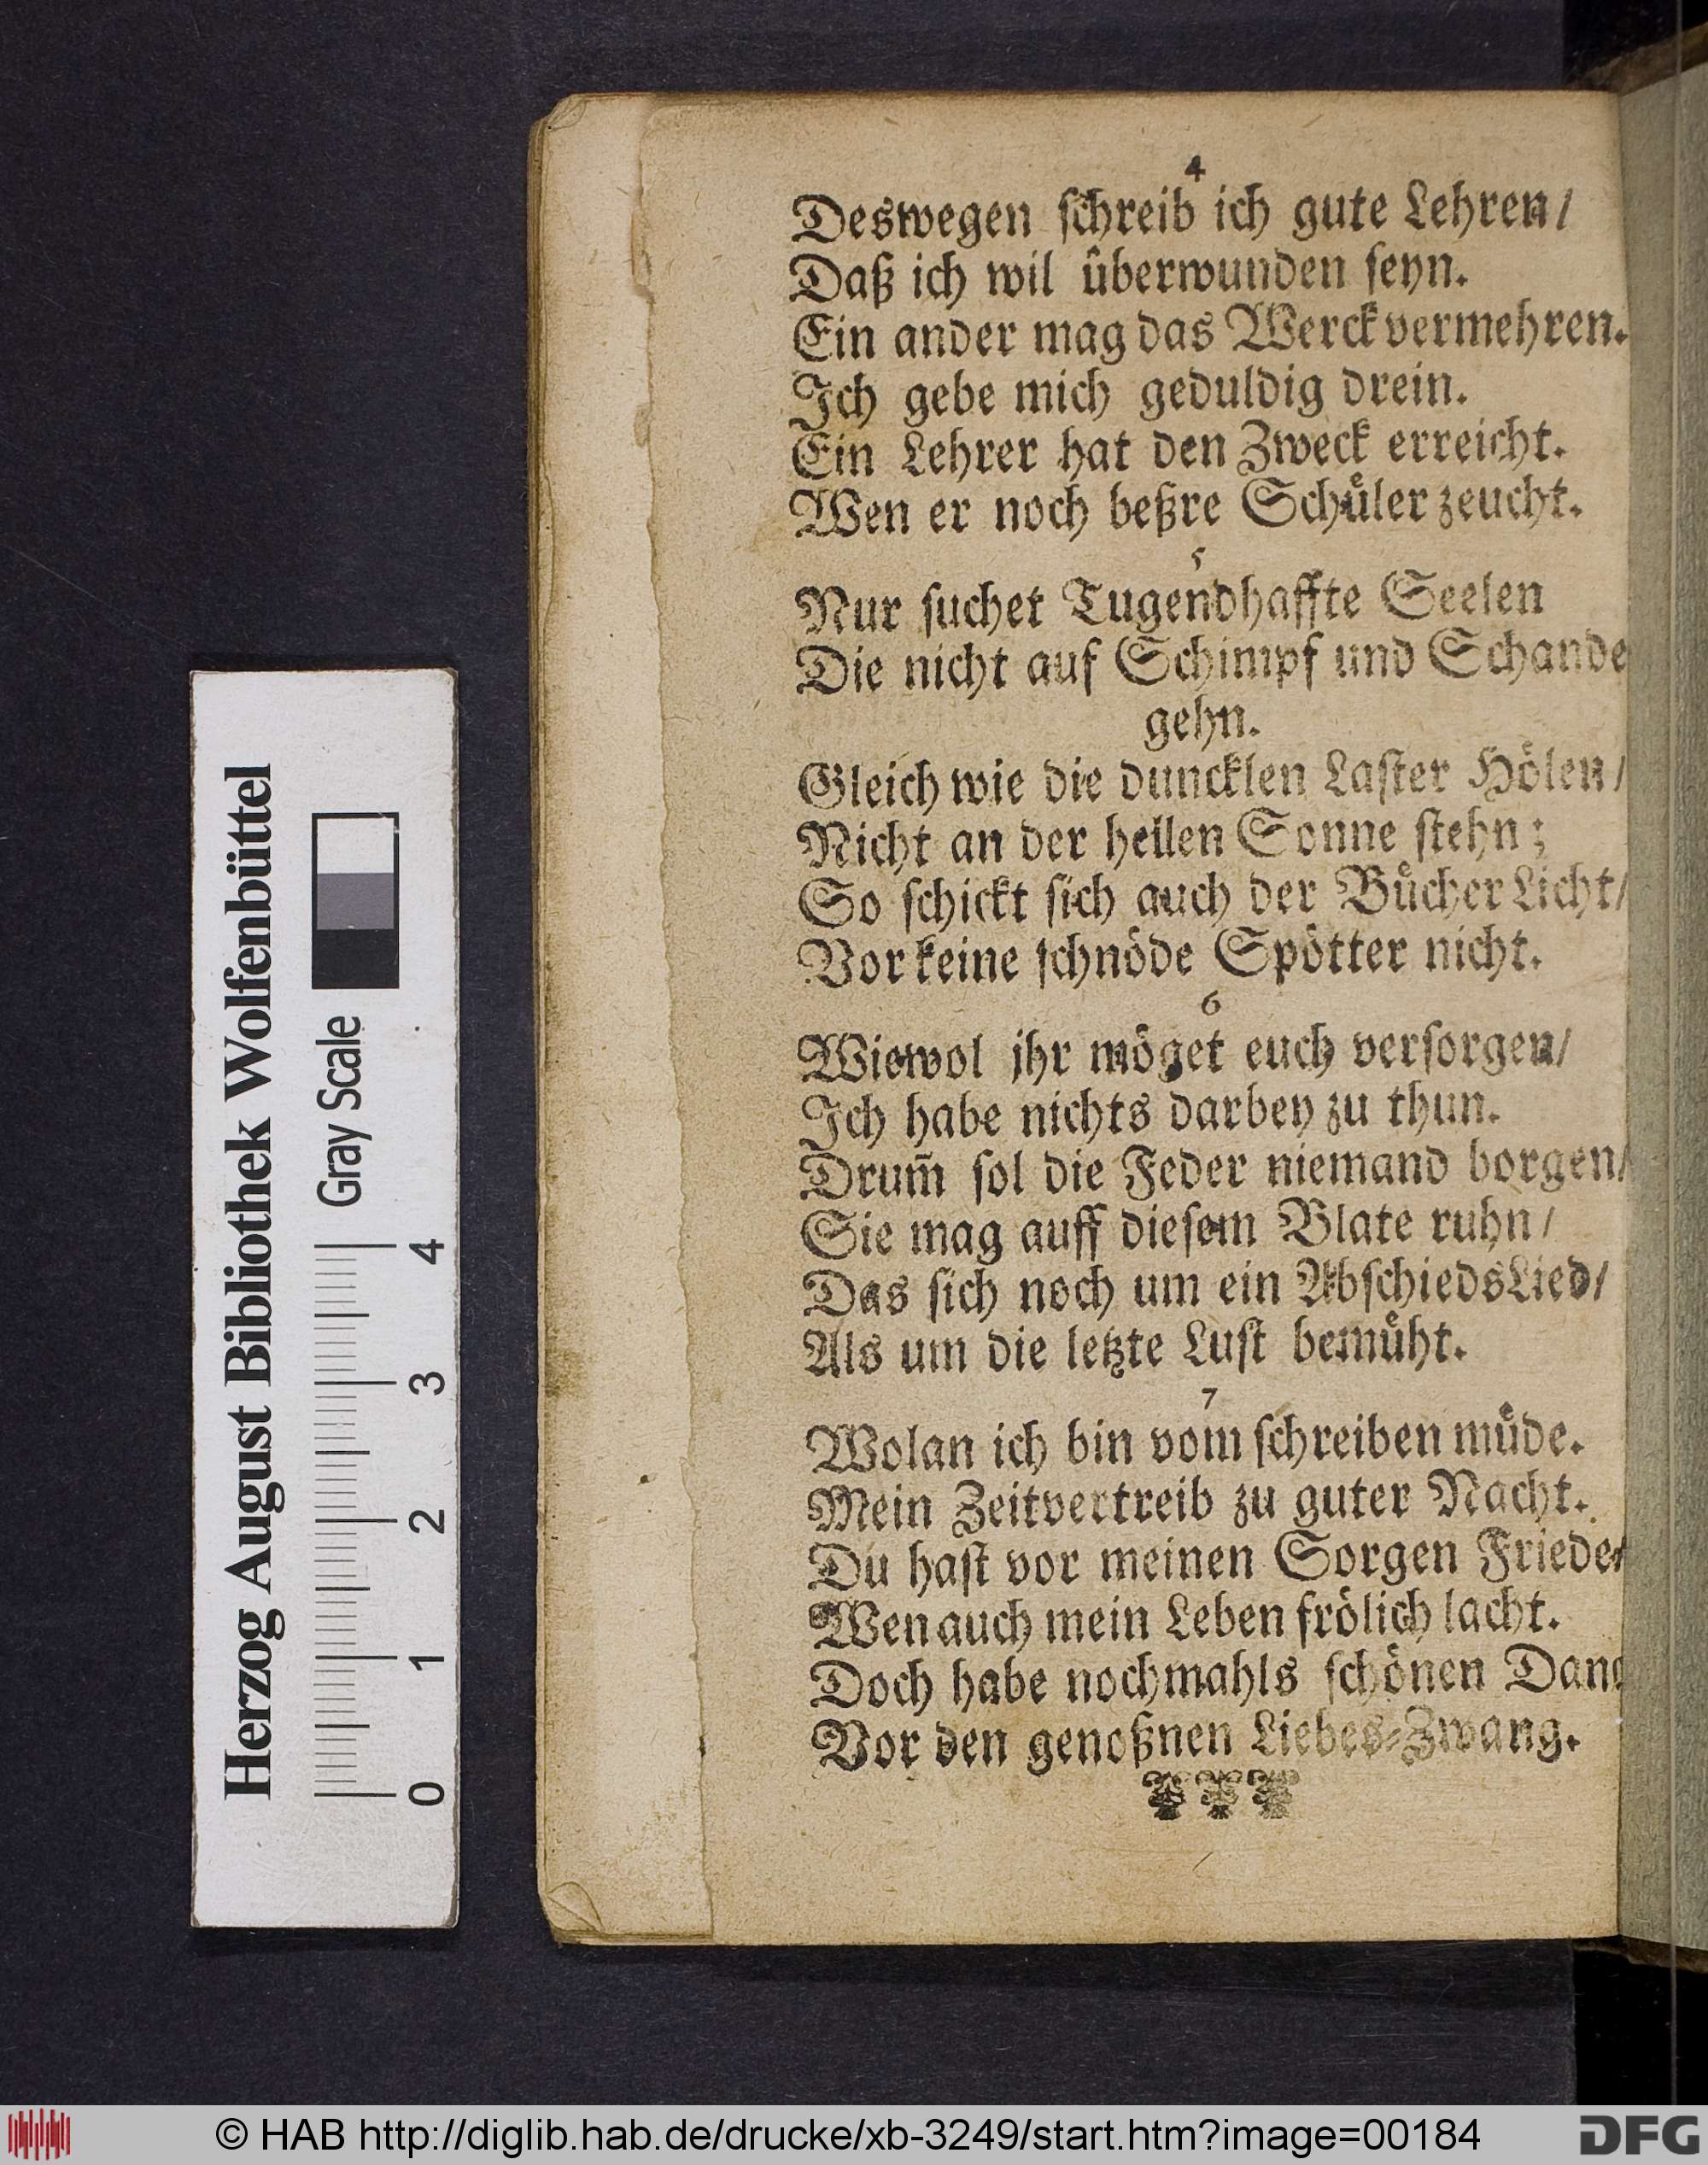 4
Deswegen ſchreib ich gute Lehren/
Daß ich wil uͤberwunden ſeyn.
Ein ander mag das Werck vermehren.
Ich gebe mich geduldig drein.
Ein Lehrer hat den Zweck erreicht.
Wen er noch beßre Schuͤler zeucht.
5
Nur ſuchet Tugendhaffte Seelen
Die nicht auf Schimpf und Schande
gehn.
Gleich wie die duncklen Laſter Hoͤlen/
Nicht an der hellen Sonne ſtehn;
So ſchickt ſich auch der Buͤcher Licht/
Vor keine ſchnoͤde Spoͤtter nicht.
6
Wiewol jhr moͤget euch verſorgen/
Ich habe nichts darbey zu thun.
Drum̃ ſol die Feder niemand borgen/
Sie mag auff dieſem Blate ruhn/
Das ſich noch um ein AbſchiedsLied/
Als um die letzte Luſt bemuͤht.
7
Wolan ich bin vom ſchreiben muͤde.
Mein Zeitvertreib zu guter Nacht.
Du haſt vor meinen Sorgen Friede/
Wen auch mein Leben froͤlich lacht.
Doch habe nochmahls ſchoͤnen Danc
Vor den genoßnen Liebes-Zwang.
Herzog August Bibliothek Wolfenbüttel
Gray Scale
0 1 2 3 4
© HAB http://diglib.hab.de/drucke/xb-3249/start.htm?image=00184
DFG